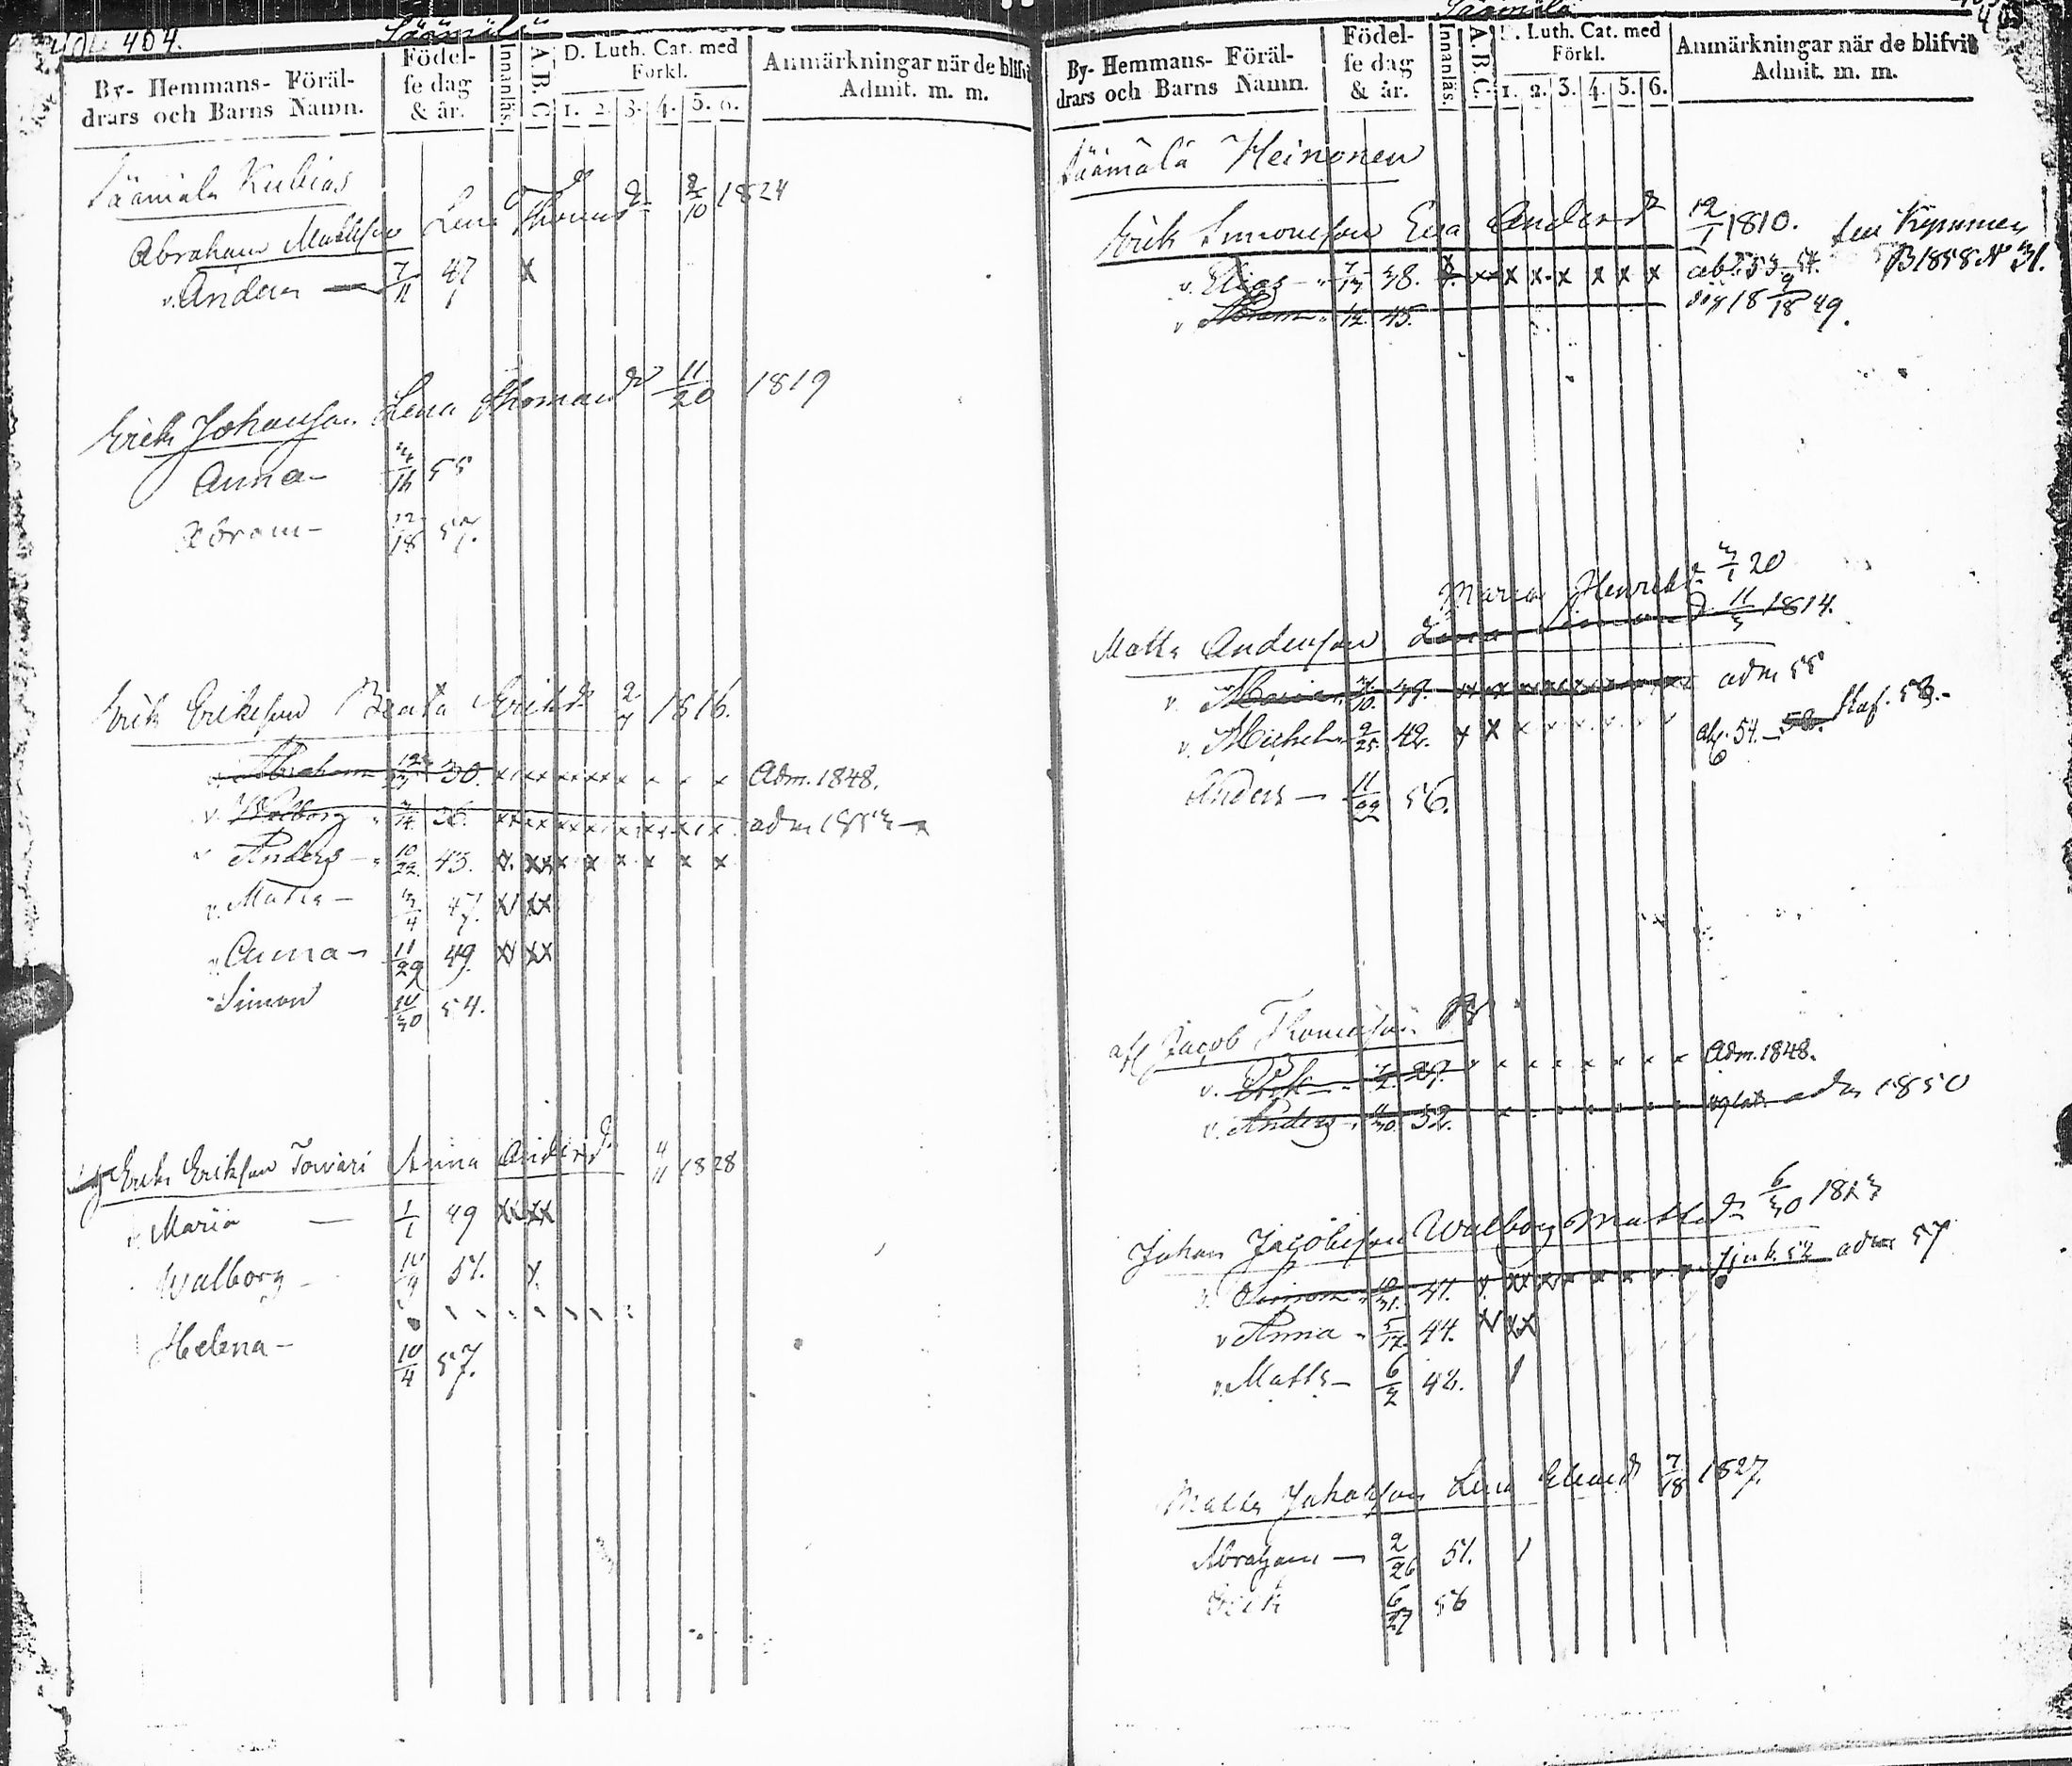 404.
Säämälä
By- Hemmans- Föräl-
drars och Barns Namn.
Födel-
se dag
& år.
Innanläs.
A. B. C.
D. Luth. Cat. med
Förkl.
1. 2. 3. 4. 5. 6.
Anmärkningar när de blifvi
Admit. m. m.
Säämälä Kubias
Abraham Mattsson Lena Thomasd 8/10 1824
v. Anders — 7/11 47 x
Erik Johansson Lena Thomasd 11/20 1819
Anna – 3/16 55
Abram – 12/18 57.
Erik Eriksson Beata Eriksd 2/7 1816.
v. Abraham 30. Adm. 1848.
v. Walborg 36. adm 1853
v Anders – 10/22. 43.
v. Matts – 3/4 47.
v. Anna – 11/29 49.
- Simon 10/30 54.
Erik Eriksson Towari Anna Andersd. 4/11 1828
v. Maria — 1/1 49
Walborg – 10/9 51.
Helena – 10/4 57.
Säämälä
By- Hemmans- Föräl-
drars och Barns Namn.
Födel-
se dag
& år.
Innanläs.
A. B. C.
D. Luth. Cat. med
Förkl.
1. 2. 3. 4. 5. 6.
Anmärkningar när de blifvit
Admit. m. m.
Säämälä Heinonen
Erik Simonsson Eva Andersd 12/1 1810.
B 1858 N 31.
v. Elias – 7/13 38. x x x x x x
v Abram 12 45. 18 9/18 49.
Maria Henriksd 3/1 20
Matts Andersson Lena Simonsd. 11/3 1814.
v. Maria 39. adm 55
v. Michel 9/25. 42. 54. 58.
Anders – 11/22 56.
afl Jacob Thomasson
v. Erik 27. Adm. 1848.
v. Anders 32. adm 1850
Johan Jacobsson Walborg Mattsd 6/30 1823
v. Simon 10/31. 41. adm 57
v Anna – 5/17. 44.
v. Matts – 6/2 48.
Matts Johansson Lena Eliasd 7/18 1827.
Abraham — 2/26 51.
Erik 6/27 56